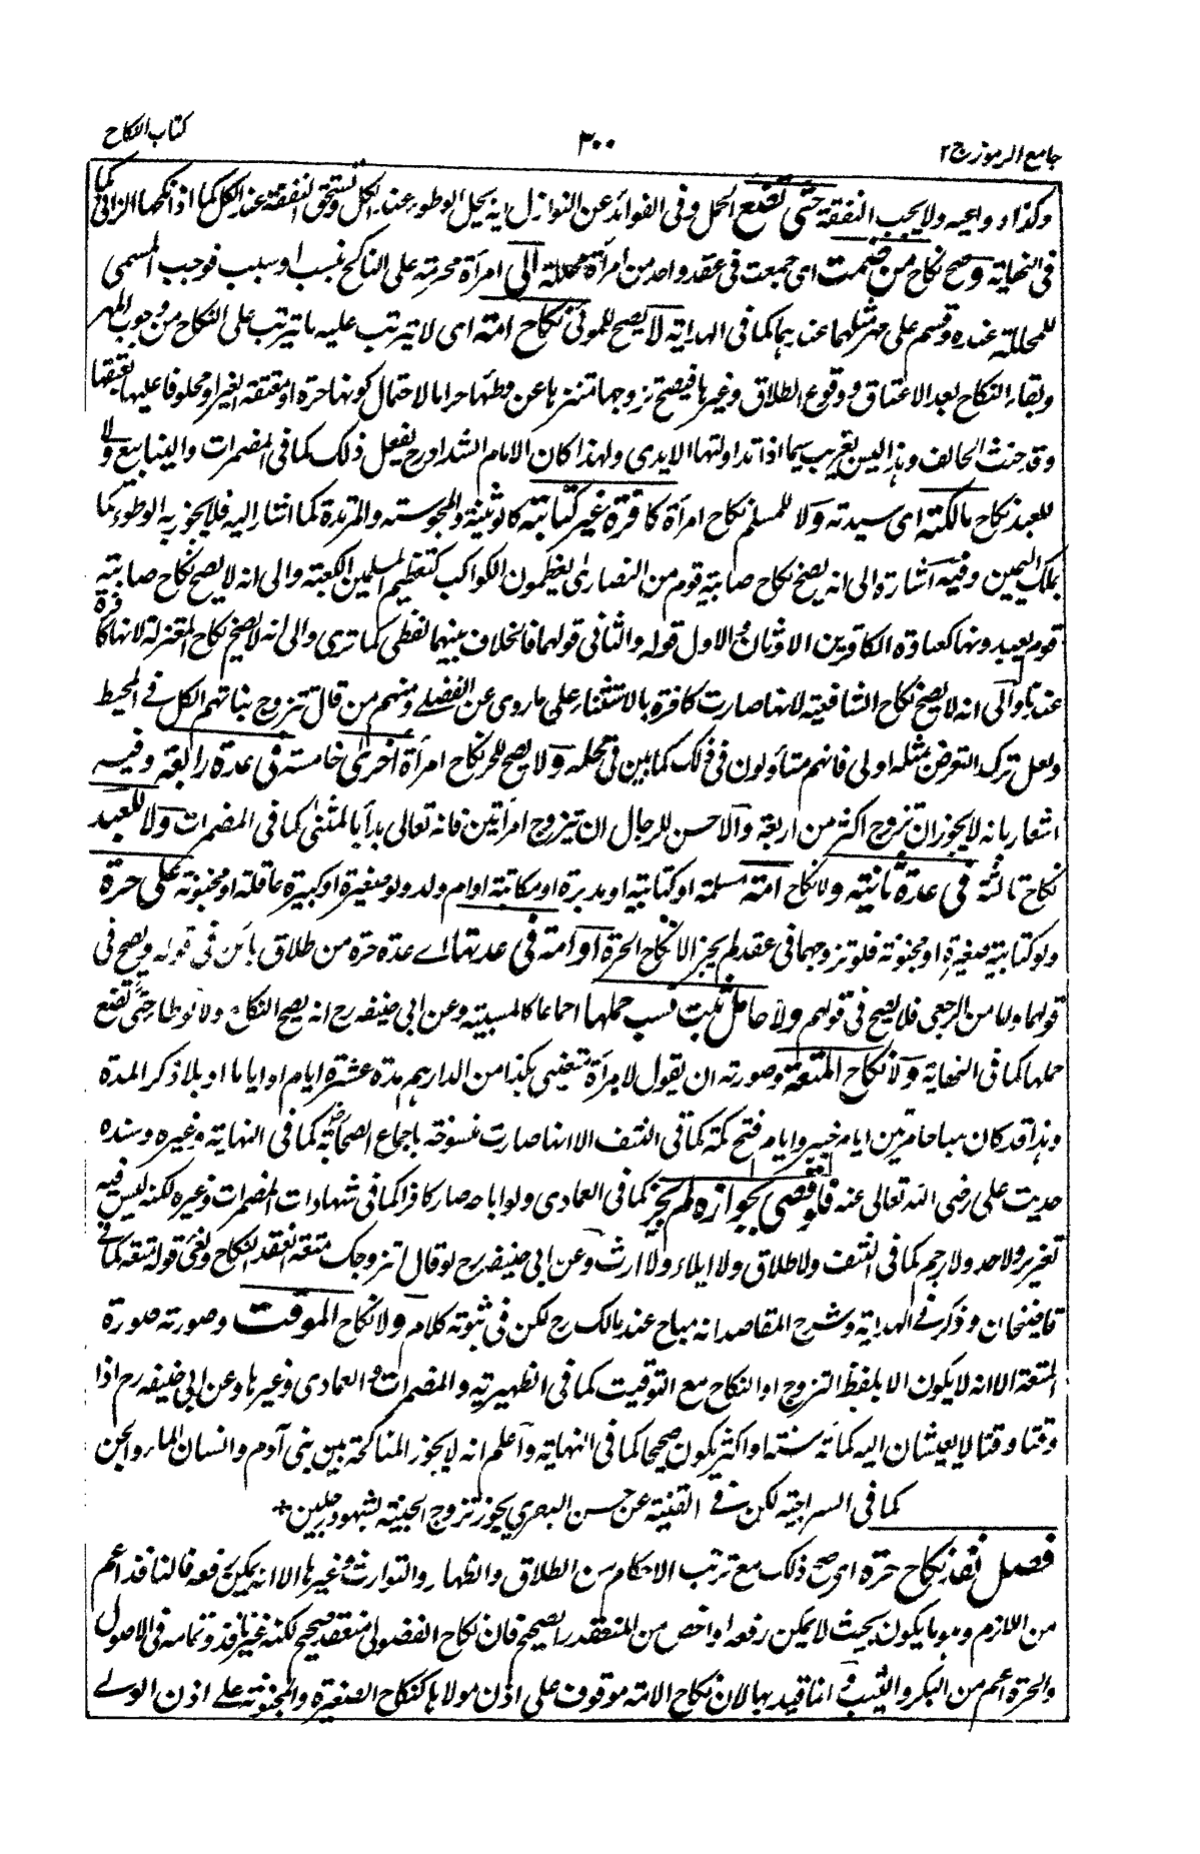 جامع الرموز ج٢
٣٠٠
كتاب النكاح
وكذا دواعيه ولا يجب النفقة حتى تضع الحمل وفى الفوائد عن النوازل انه يحل الوطوء عند الكل وتستحق النفقة عند الكل كما اذا نكحها الزانى كما
فى النهاية وصح نكاح من ضمت اى جمعت فى عقد واحد من امرأة محللة الى امرأة محرمة على الناكح بنسب او سبب فوجب المسمى
للمحللة عنده وقسم على مهر مثلهما عندهما كما فى الهداية لا يصح للمولى نكاح امته اى لا يترتب عليه ما يترتب على النكاح من وجوب المهر
وبقاء النكاح بعد الاعتاق ووقوع الطلاق وغيرها فيصح تزوجها متنزها عن وطئها حراما لاحتمال كونها حرة او معتقة الغير او محلوفا عليها بعتقها
وقد حنث الحالف وهذا ليس بغريب سيما اذا تداولتها الايدى ولهذا كان الامام الشداد رح يفعل ذلك كما فى المضمرات والينابيع ولا
للعبد نكاح مالكته اى سيدته ولا للمسلم نكاح امرأة كافرة غير كتابية كالوثنية والمجوسية والمرتدة كما اشار اليه فلا يجوز به الوطوء كما
بملك اليمين وفيه اشارة الى انه يصح نكاح صابية قوم من النصارى يعظمون الكواكب كتعظيم المسلمين الكعبة والى انه لا يصح نكاح صابية
قوم يعبدونها كعبادة الكافرين الاوثان والاول قوله والثانى قولهما فالخلاف بينهما لفظى كما ترى والى انه لا يصح نكاح المعتزلة لانها كافرة
عندنا والى انه لا يصح نكاح الشافعية لانها صارت كافرة بالاستثناء على ما روى عن الفضلى ومنهم من قال تتزوج بناتهم الكل فى المحيط
ولعل ترك التعرض بمثله اولى فانهم متأولون فى ذلك كما بين فى محله ولا يصح للحر نكاح امرأة اخرى خامسة فى عدة رابعة وفيه
اشعار بانه لا يجوز ان يتزوج اكثر من اربعة والاحسن للرجال ان يتزوج امرأتين فانه تعالى بدأ بالمثنى كما فى المضمرات ولا للعبد
نكاح ثالثة فى عدة ثانية ولا نكاح امة مسلمة او كتابية او مدبرة او مكاتبة او ام ولد ولو صغيرة او كبيرة عاقلة او مجنونة على حرة
ولو كتابية صغيرة او مجنونة فلو تزوجهما فى عقد لم يجز الا نكاح الحرة او امة فى عدتها اى عدة حرة من طلاق بائن فى قوله ويصح فى
قولهما واما من الرجعى فلا يصح فى قولهم ولا حامل ثبت نسب حملها اجماعا كالمسبية وعن ابى حنيفة رح انه يصح النكاح ولا توطأ حتى تضع
حملها كما فى النهاية ولا نكاح المتعة وصورته ان يقول لامرأة متعينى بكذا من الدراهم مدة عشرة ايام او اياما او بلا ذكر المدة
وهذا قد كان مباحا مرتين ايام خيبر وايام فتح مكة كما فى النتف الا انها صارت منسوخة باجماع الصحابة كما فى النهاية وغيره وسنده
حديث على رضى الله تعالى عنه فلو قضى بجوازه لم يجز كما فى العمادى ولو اباحه صار كافرا كما فى شهادات المضمرات وغيره لكنه ليس فيه
تعزير ولا حد ولا رجم كما فى النتف ولا طلاق ولا ايلاء ولا ارث وعن ابى حنيفة رح لو قال اتزوجك متعة انعقد النكاح ولغى قوله متعة كما فى
قاضيخان وذكر فى الهداية وشرح المقاصد انه مباح عند مالك رح لكن فى ثبوته كلام ولا نكاح الموقت وصورته صورة
المتعة الا انه لا يكون الا بلفظ التزوج او النكاح مع التوقيت كما فى الظهيرية والمضمرات والعمادى وغيرها وعن ابى حنيفة رح اذا
وقتا وقتا لا يعيشان اليه كمائة سنة او اكثر يكون صحيحا كما فى النهاية واعلم انه لا يجوز المناكحة بين بنى آدم وانسان الماء والجن
كما فى السراجية لكن فى القنية عن حسن البصرى يجوز تزوج الجنية بشهود رجلين
فصل نفذ نكاح حرة اى صح ذلك مع ترتب الاحكام من الطلاق والظهار والتوارث وغيرها الا انه يمكن رفعه فالنافذ اعم
من اللازم وهو ما يكون بحيث لا يمكن رفعه او اخص من المنعقد الصحيح فان نكاح الفضولى منعقد صحيح لكنه غير نافذ وتمامه فى الاصول
والحرة اعم من البكر والثيب وانما قيد بها لان نكاح الامة موقوف على اذن مولاها كنكاح الصغيرة والمجنونة على اذن الولى